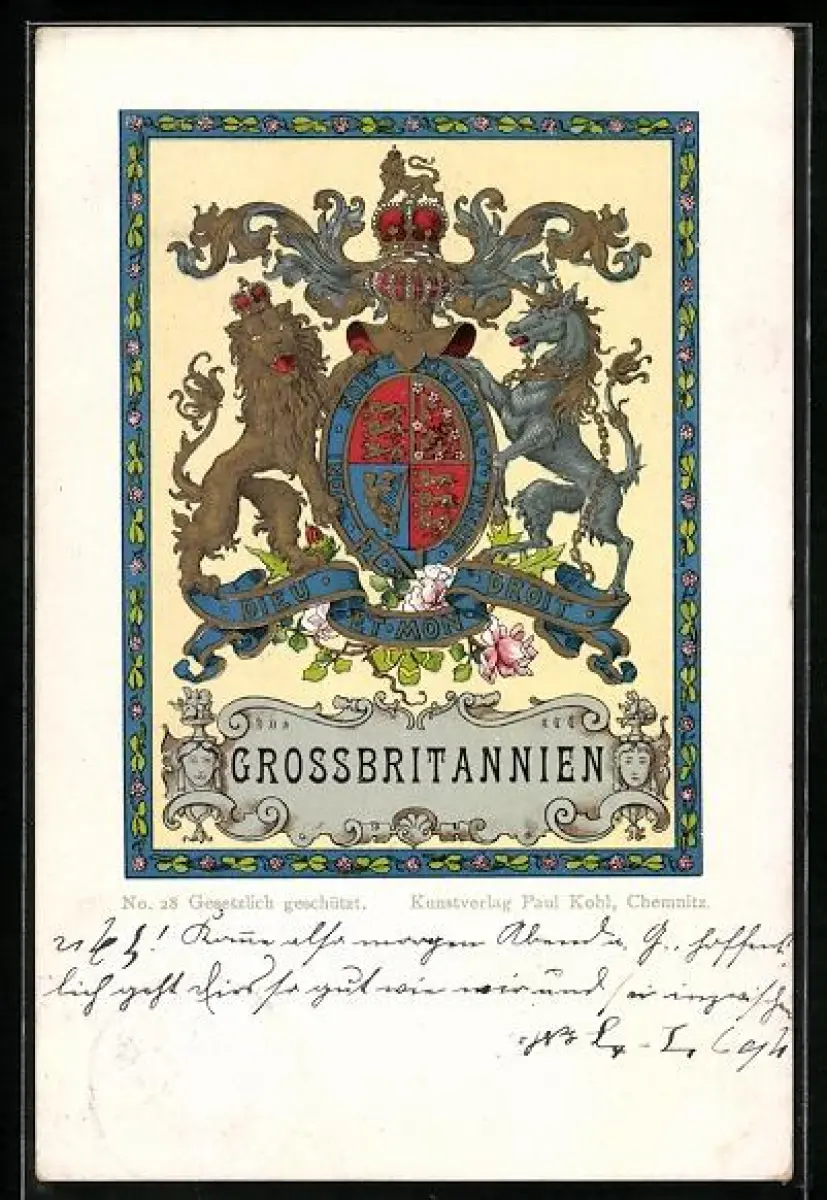 HONI SOIT QUI MAL Y PENSE
DIEU ET MON DROIT
GROSSBRITANNIEN
No. 28 Gesetzlich geschützt. Kunstverlag Paul Kohl, Chemnitz.
Komme also morgen Abend hoffent
lich geht Dirs so gut wie wir und